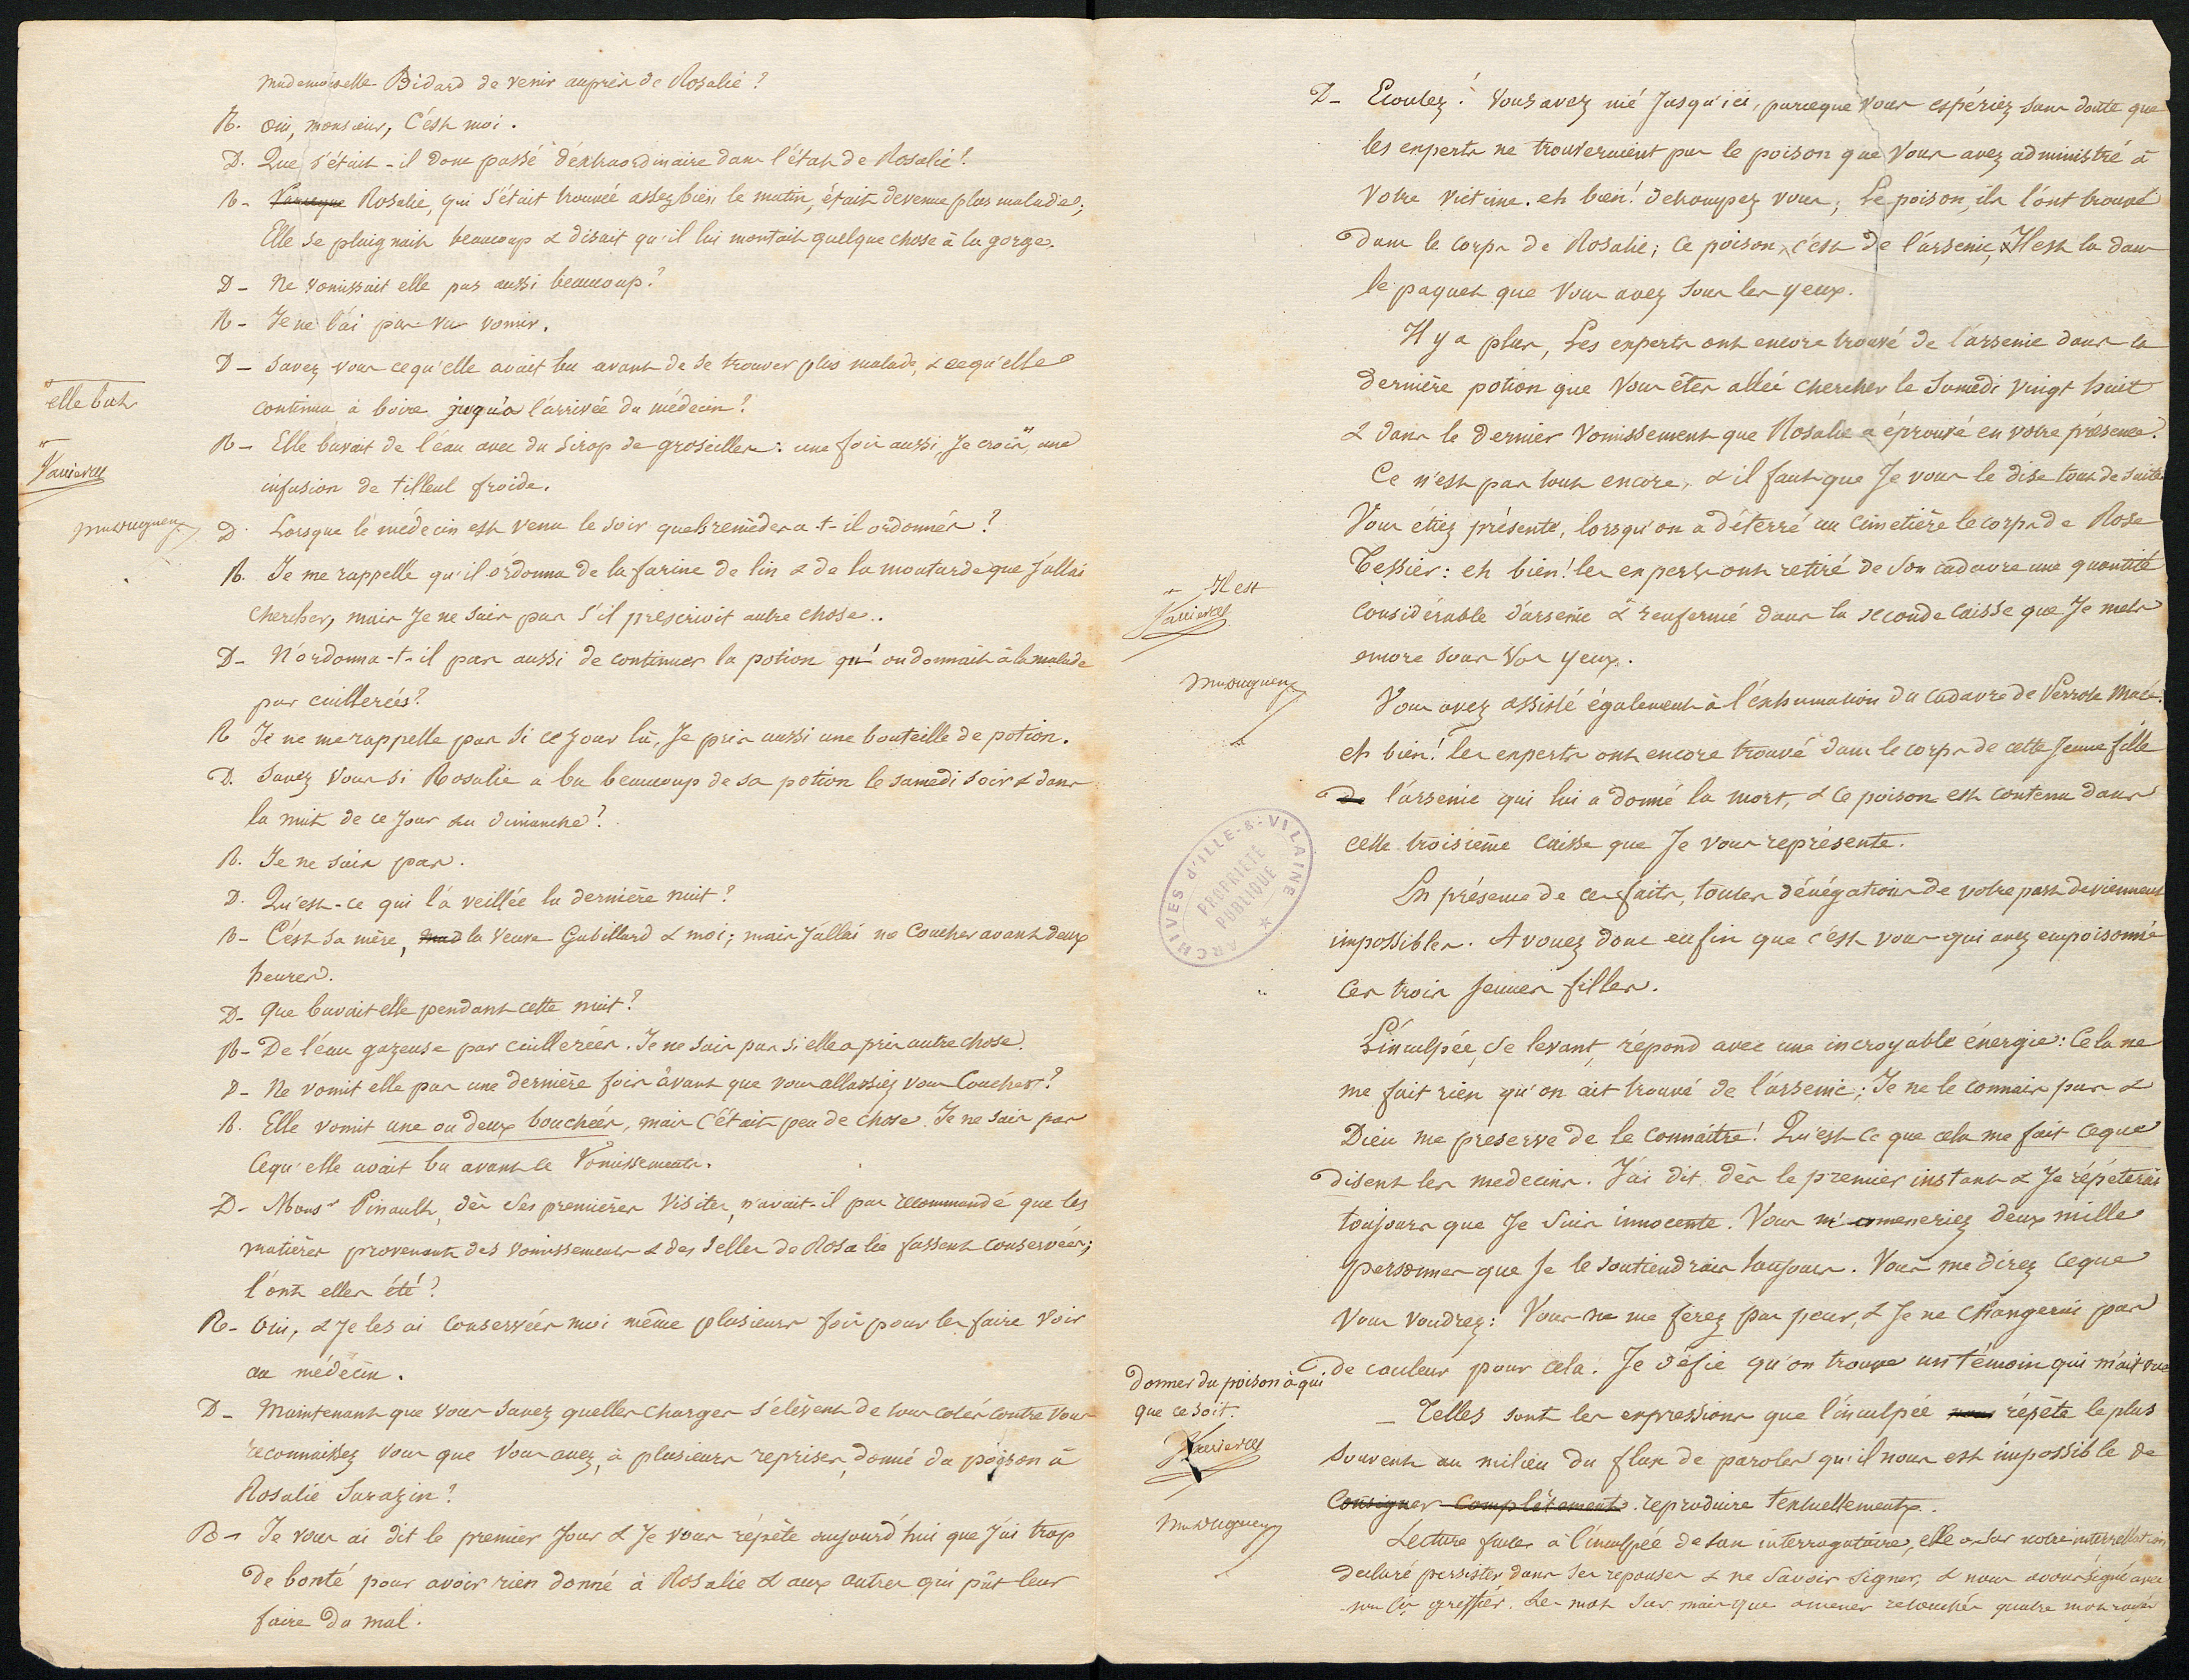 Mademoiselle Bidard de venir auprès de Rosalie ?
R. Oui, monsieur, C'ést moi.
D. Que s'était-il donc passé d'éxtraordinaire dans l'état de Rosalie ?
R- Parceque Rosalie, qui s'était trouvée assez bien le matin, était devenue plus malade;
Elle se plaignait beaucoup & disait qu'il lui montait quelque chose à la gorge.
D- Ne vomissait elle pas aussi beaucoup ?
R- Je ne l'ai pas vu vomir.
D- Savez vous cequ'elle avait bu avant de se trouver plus malade, & cequ'elle
continua à boire jusqu'à l'arrivée du médecin ?
R- Elle buvait de l'eau avec du Sirop de groseilles : une fois aussi, Je crois, une
infusion de tilleul froide.
elle but
D. Lorsque le médecin est venu le soir quels remèdes a-t-il ordonnés ?
R. Je me rappelle qu'il ordonna de la farine de lin & de la moutarde que J'allai
chercher, mais Je ne sais pas s'il prescrivit autre chose..
D- N'ordonna-t-il pas aussi de continuer la potion qu'on donnait à la malade
par cuillerées ?
R Je ne me rappelle pas si ce jour là, Je pris aussi une bouteille de potion.
D. Savez vous si Rosalie a bu beaucoup de sa potion le samedi soir & dans
la nuit de ce Jour au dimanche ?
R. Je ne sais pas.
D. Qu'est-ce qui l'a veillée la dernière nuit ?
R- C'ést sa mère, mad la Veuve Gubillard & moi; mais J'allai me Coucher avant deux
heures.
D- Que buvait elle pendant cette nuit ?
R- De l'éau gazeuse par cuillerées. Je ne sais pas si elle a pris autre chose.
D- Ne vomit elle pas une dernière fois avant que vous allassiez vous Coucher ?
R. Elle vomit une ou deux bouchées, mais c'était peu de chose. Je ne sais pas
Cequ'elle avait bu avant ce Vomissement.
D- Monsr Pinault, dès ses premières visites, n'avait-il pas recommandé que les
matières provenant des vomissements & des selles de Rosalie fussent conservées;
l'ont elles été ?
R- Oui, & Je les ai conservées moi même plusieurs fois pour les faire voir
au médecin.
D- Maintenant que vous savez quelles charges s'élèvent de tous cotés contre vous
reconnaissez vous que vous avez, à plusieurs reprises, donné du poison à
Rosalie Sarazin ?
R- Je vous ai dit le premier Jour & Je vous répète aujourd'hui que J'ai trop
de bonté pour avoir rien donné à Rosalie & aux autres qui pût leur
faire du mal.
D- Ecoutez ! Vous avez nié Jusqu'ici, parceque vous espériez sans doute que
les experts ne trouveraient pas le poison que vous avez administré à
votre victime. eh bien ! détrompez vous; le poison, ils l'ont trouvé
dans le corps de Rosalie; Ce poison, c'est de l'arsenic, Il est la dans
le paquet que vous avez sous les yeux.
Il y a plus, les experts ont encore trouvé de l'arsenic dans la
dernière potion que vous êtes allée chercher le Samedi vingt huit
& dans le dernier vomissement que Rosalie a éprouvé en votre présence.
Ce n'est pas tout encore, & il faut que Je vous le dise tout de suite.
Vous étiez présente, lorsqu'on a déterré au cimetière le corps de Rose
Tessier : eh bien ! les experts ont retiré de son cadavre une quantité
considérable d'arsenic & renfermé dans la seconde caisse que Je mets
encore sous vos yeux.
Il est
Vous avez assisté également à l'éxhumation du cadavre de Perrotte Macé.
eh bien ! les experts ont encore trouvé dans le corps de cette Jeune fille
de l'arsenic qui lui a donné la mort, & ce poison est contenu dans
cette troisième caisse que Je vous représente.
En présence de ces faits, toutes dénégations de votre part deviennent
impossibles. Avouez donc enfin que c'est vous qui avez empoisonné
ces trois Jeunes filles.
ARCHIVES D'ILLE-&-VILAINE
PROPRIÉTÉ
PUBLIQUE
L'inculpée, se levant, répond avec une incroyable énergie : Cela ne
me fait rien qu'on ait trouvé de l'arsenic; Je ne le connais pas &
Dieu me preserve de le connaître ! Qu'est ce que cela me fait ceque
disent les medecins. J'ai dit dès le premier instant & Je répéterai
toujours que Je suis innocente. Vous m'amèneriez deux mille
personnes que Je le soutiendrais toujours. Vous me direz ceque
vous voudrez : Vous ne me ferez pas peur, & Je ne changerai pas
de couleur pour cela. Je défie qu'on trouve un témoin qui m'ait vue
donner du poison à qui
que ce soit.
- Telles sont les expressions que l'inculpée nous répète le plus
souvent au milieu du flux de paroles qu'il nous est impossible de
Consigner complètement. reproduire textuellement.
Lecture faite à l'inculpée de son interrogatoire, elle a sur notre interpellation
declaré persister dans ses reponses & ne savoir signer, & nous avons signé avec
greffier. Les mots sur mais que amener retouchés quatre mots rayés